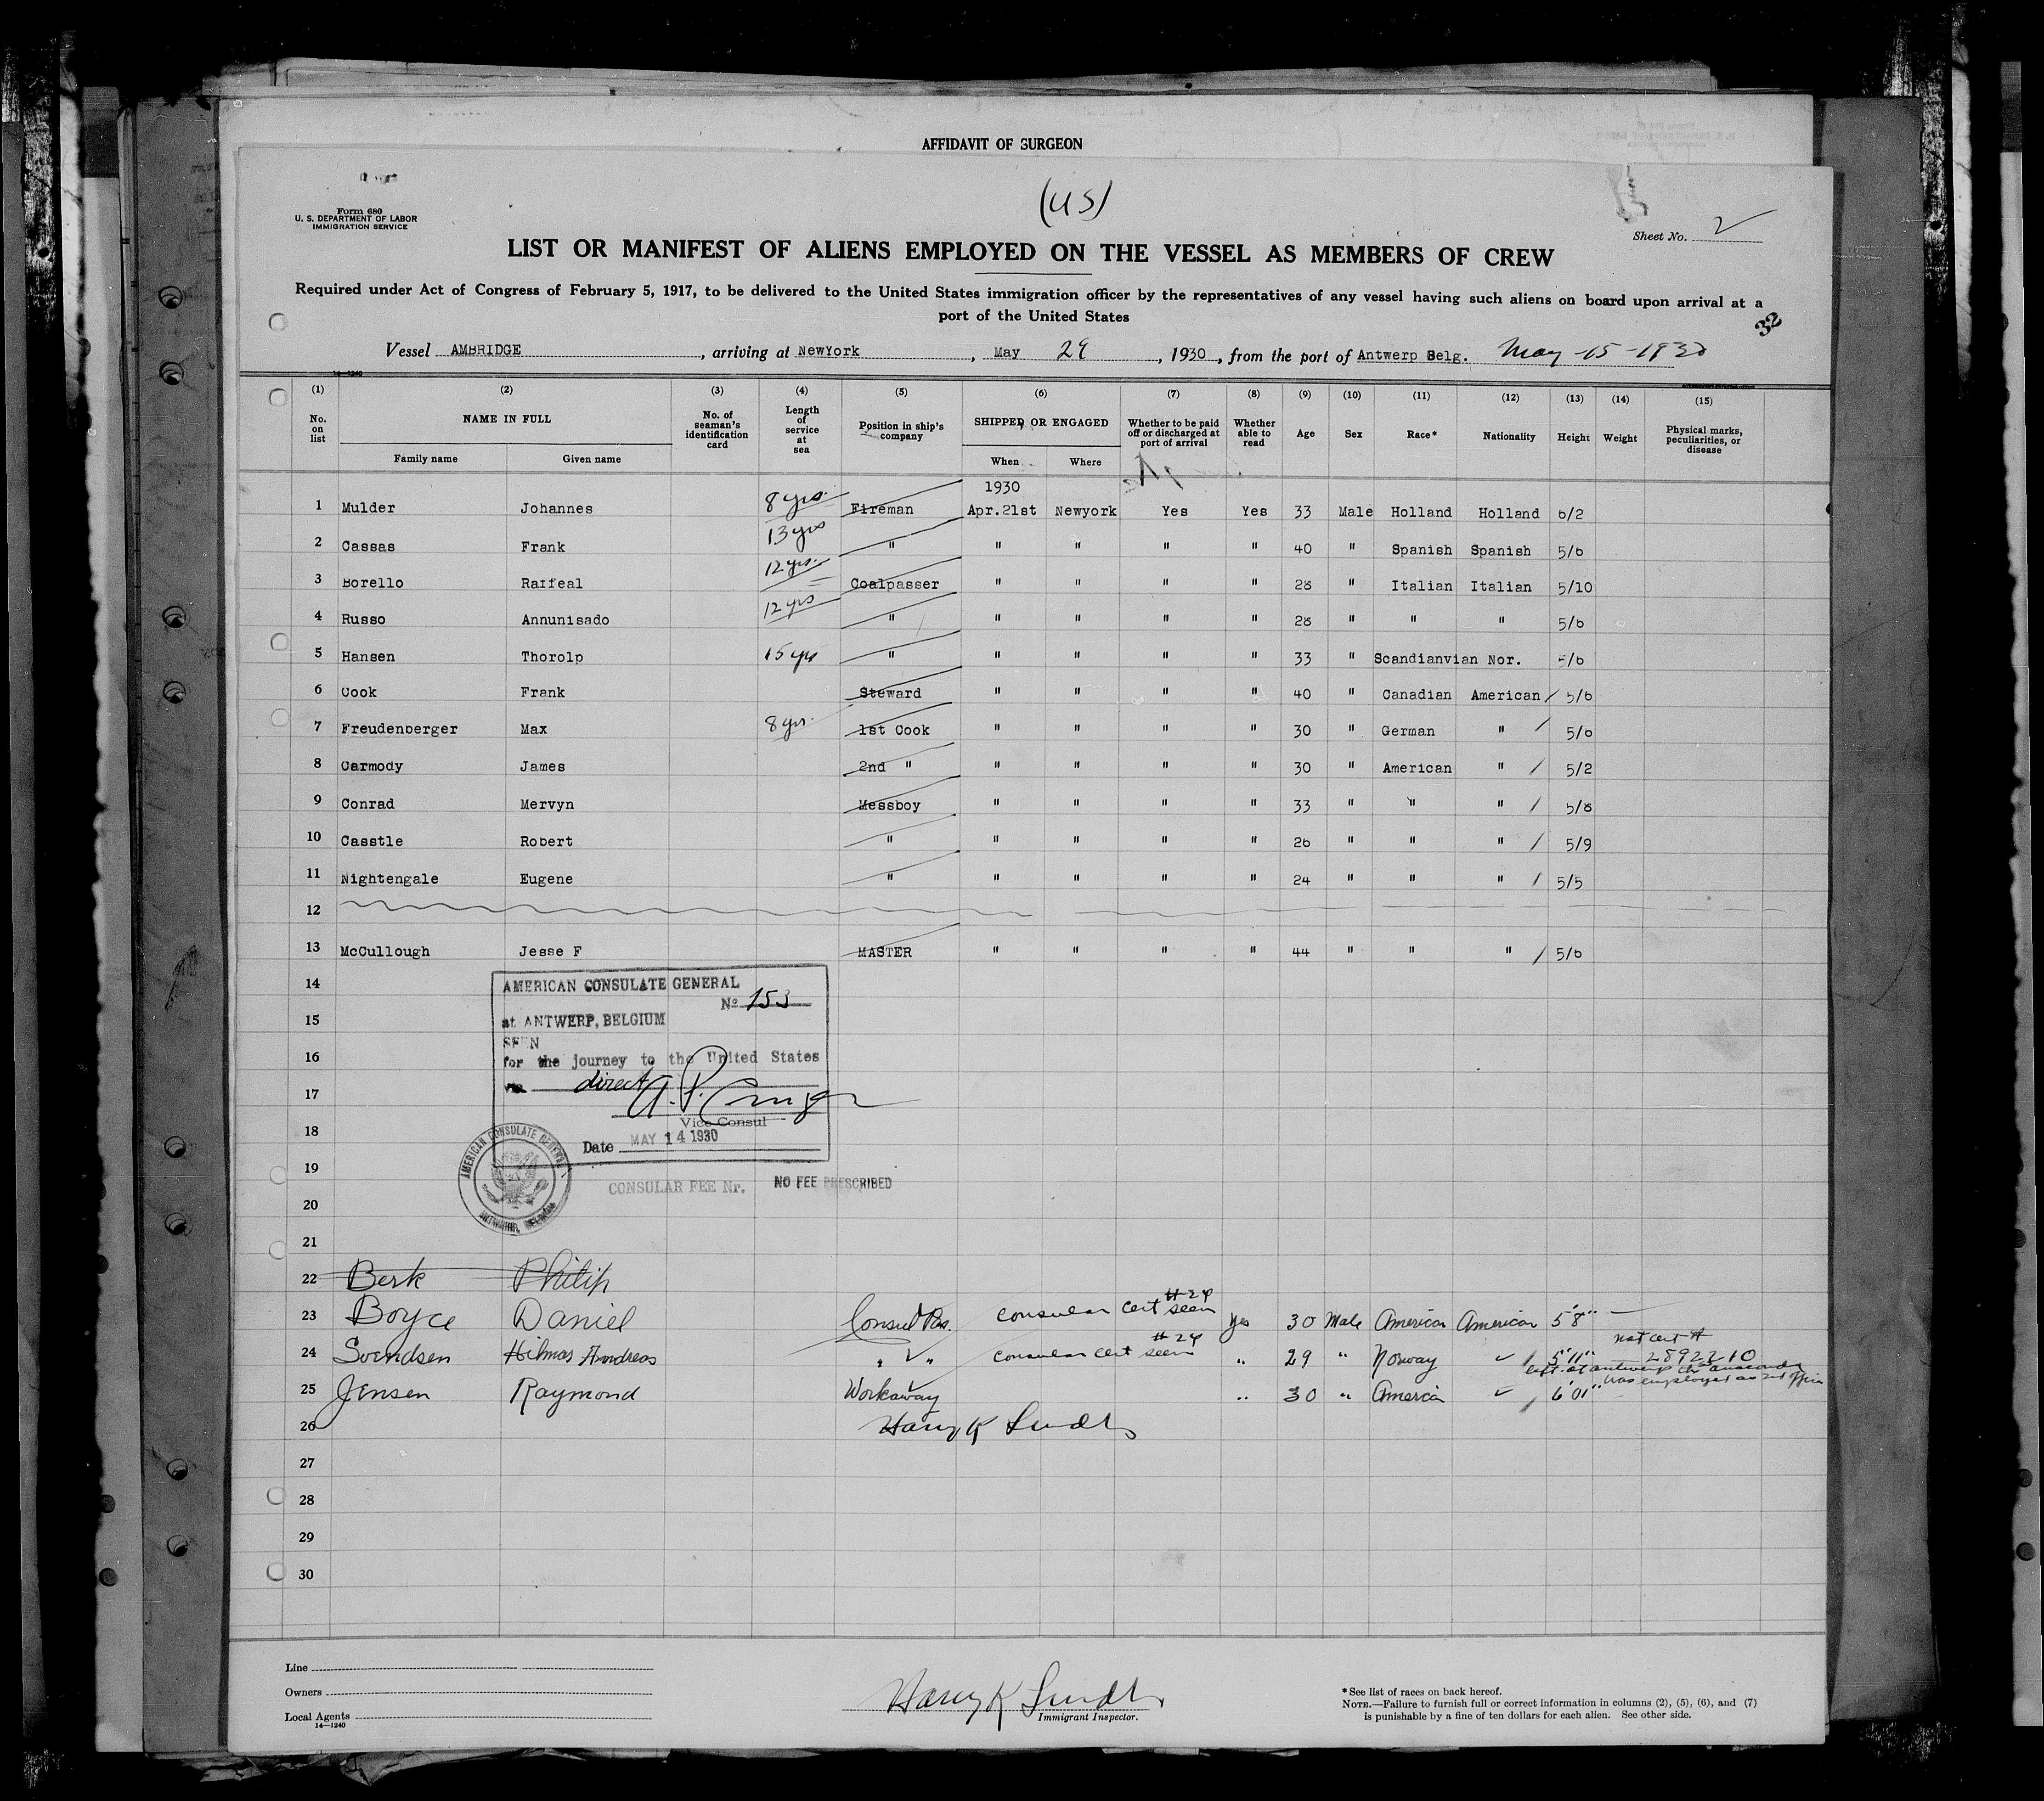 AFFIDAVIT OF SURGEON
(US)
Form 680
U. S. DEPARTMENT OF LABOR
IMMIGRATION SERVICE
Sheet No. 2
LIST OR MANIFEST OF ALIENS EMPLOYED ON THE VESSEL AS MEMBERS OF CREW
Required under Act of Congress of February 5, 1917, to be delivered to the United States immigration officer by the representatives of any vessel having such aliens on board upon arrival at a
port of the United States
32
Vessel AMBRIDGE, arriving at NewYork, May 29, 1930, from the port of Antwerp Belg. May-15-1930
14—1240
(1) (2) (3) (4) (5) (6) (7) (8) (9) (10) (11) (12) (13) (14) (15)
No. on list NAME IN FULL Family name Given name No. of seaman's identification card Length of service at sea Position in ship's company SHIPPED OR ENGAGED When Where Whether to be paid off or discharged at port of arrival Whether able to read Age Sex Race* Nationality Height Weight Physical marks, peculiarities, or disease
1930
1 Mulder Johannes 8 yrs. Fireman Apr.21st Newyork Yes Yes 33 Male Holland Holland 6/2
2 Cassas Frank 13 yrs " " " " " 40 " Spanish Spanish 5/6
3 Borello Raffeal 12 yrs. Coalpasser " " " " 28 " Italian Italian 5/10
4 Russo Annunisado 12 yrs " " " " " 28 " " " 5/6
5 Hansen Thorolp 15 yrs " " " " " 33 " Scandianvian Nor. 5/6
6 Cook Frank Steward " " " " 40 " Canadian American / 5/6
7 Freudenberger Max 8 yrs. 1st Cook " " " " 30 " German " / 5/6
8 Carmody James 2nd " " " " " 30 " American " / 5/2
9 Conrad Mervyn Messboy " " " " 33 " " " / 5/8
10 Casstle Robert " " " " " 26 " " " / 5/9
11 Nightengale Eugene " " " " " 24 " " " / 5/5
12
13 McCullough Jesse F MASTER " " " " 44 " " " / 5/6
14
AMERICAN CONSULATE GENERAL
No 153
15
at ANTWERP, BELGIUM
SEEN
16
for the journey to the United States
via direct
17
Vice Consul
18
Date MAY 14 1930
AMERICAN CONSULATE GENERAL ANTWERP, BELGIUM
19
CONSULAR FEE Nr. NO FEE PRESCRIBED
20
21
22 Berk Philip
23 Boyce Daniel Consul Pas. consular cert #24 seen Yes 30 Male American American 5'8" —
24 Svendsen Hilmar Andreas " " consular cert #24 seen " 29 " Norway ✓ / 5'11" nat cert # 2892210
left at antwerp the anaconda
was employed as
25 Jensen Raymond Workaway " 30 " America ✓ / 6'01"
26 Harry K
27
28
29
30
Line
Owners
Local Agents
14—1240
Harry K
Immigrant Inspector.
* See list of races on back hereof.
NOTE.—Failure to furnish full or correct information in columns (2), (5), (6), and (7)
is punishable by a fine of ten dollars for each alien. See other side.